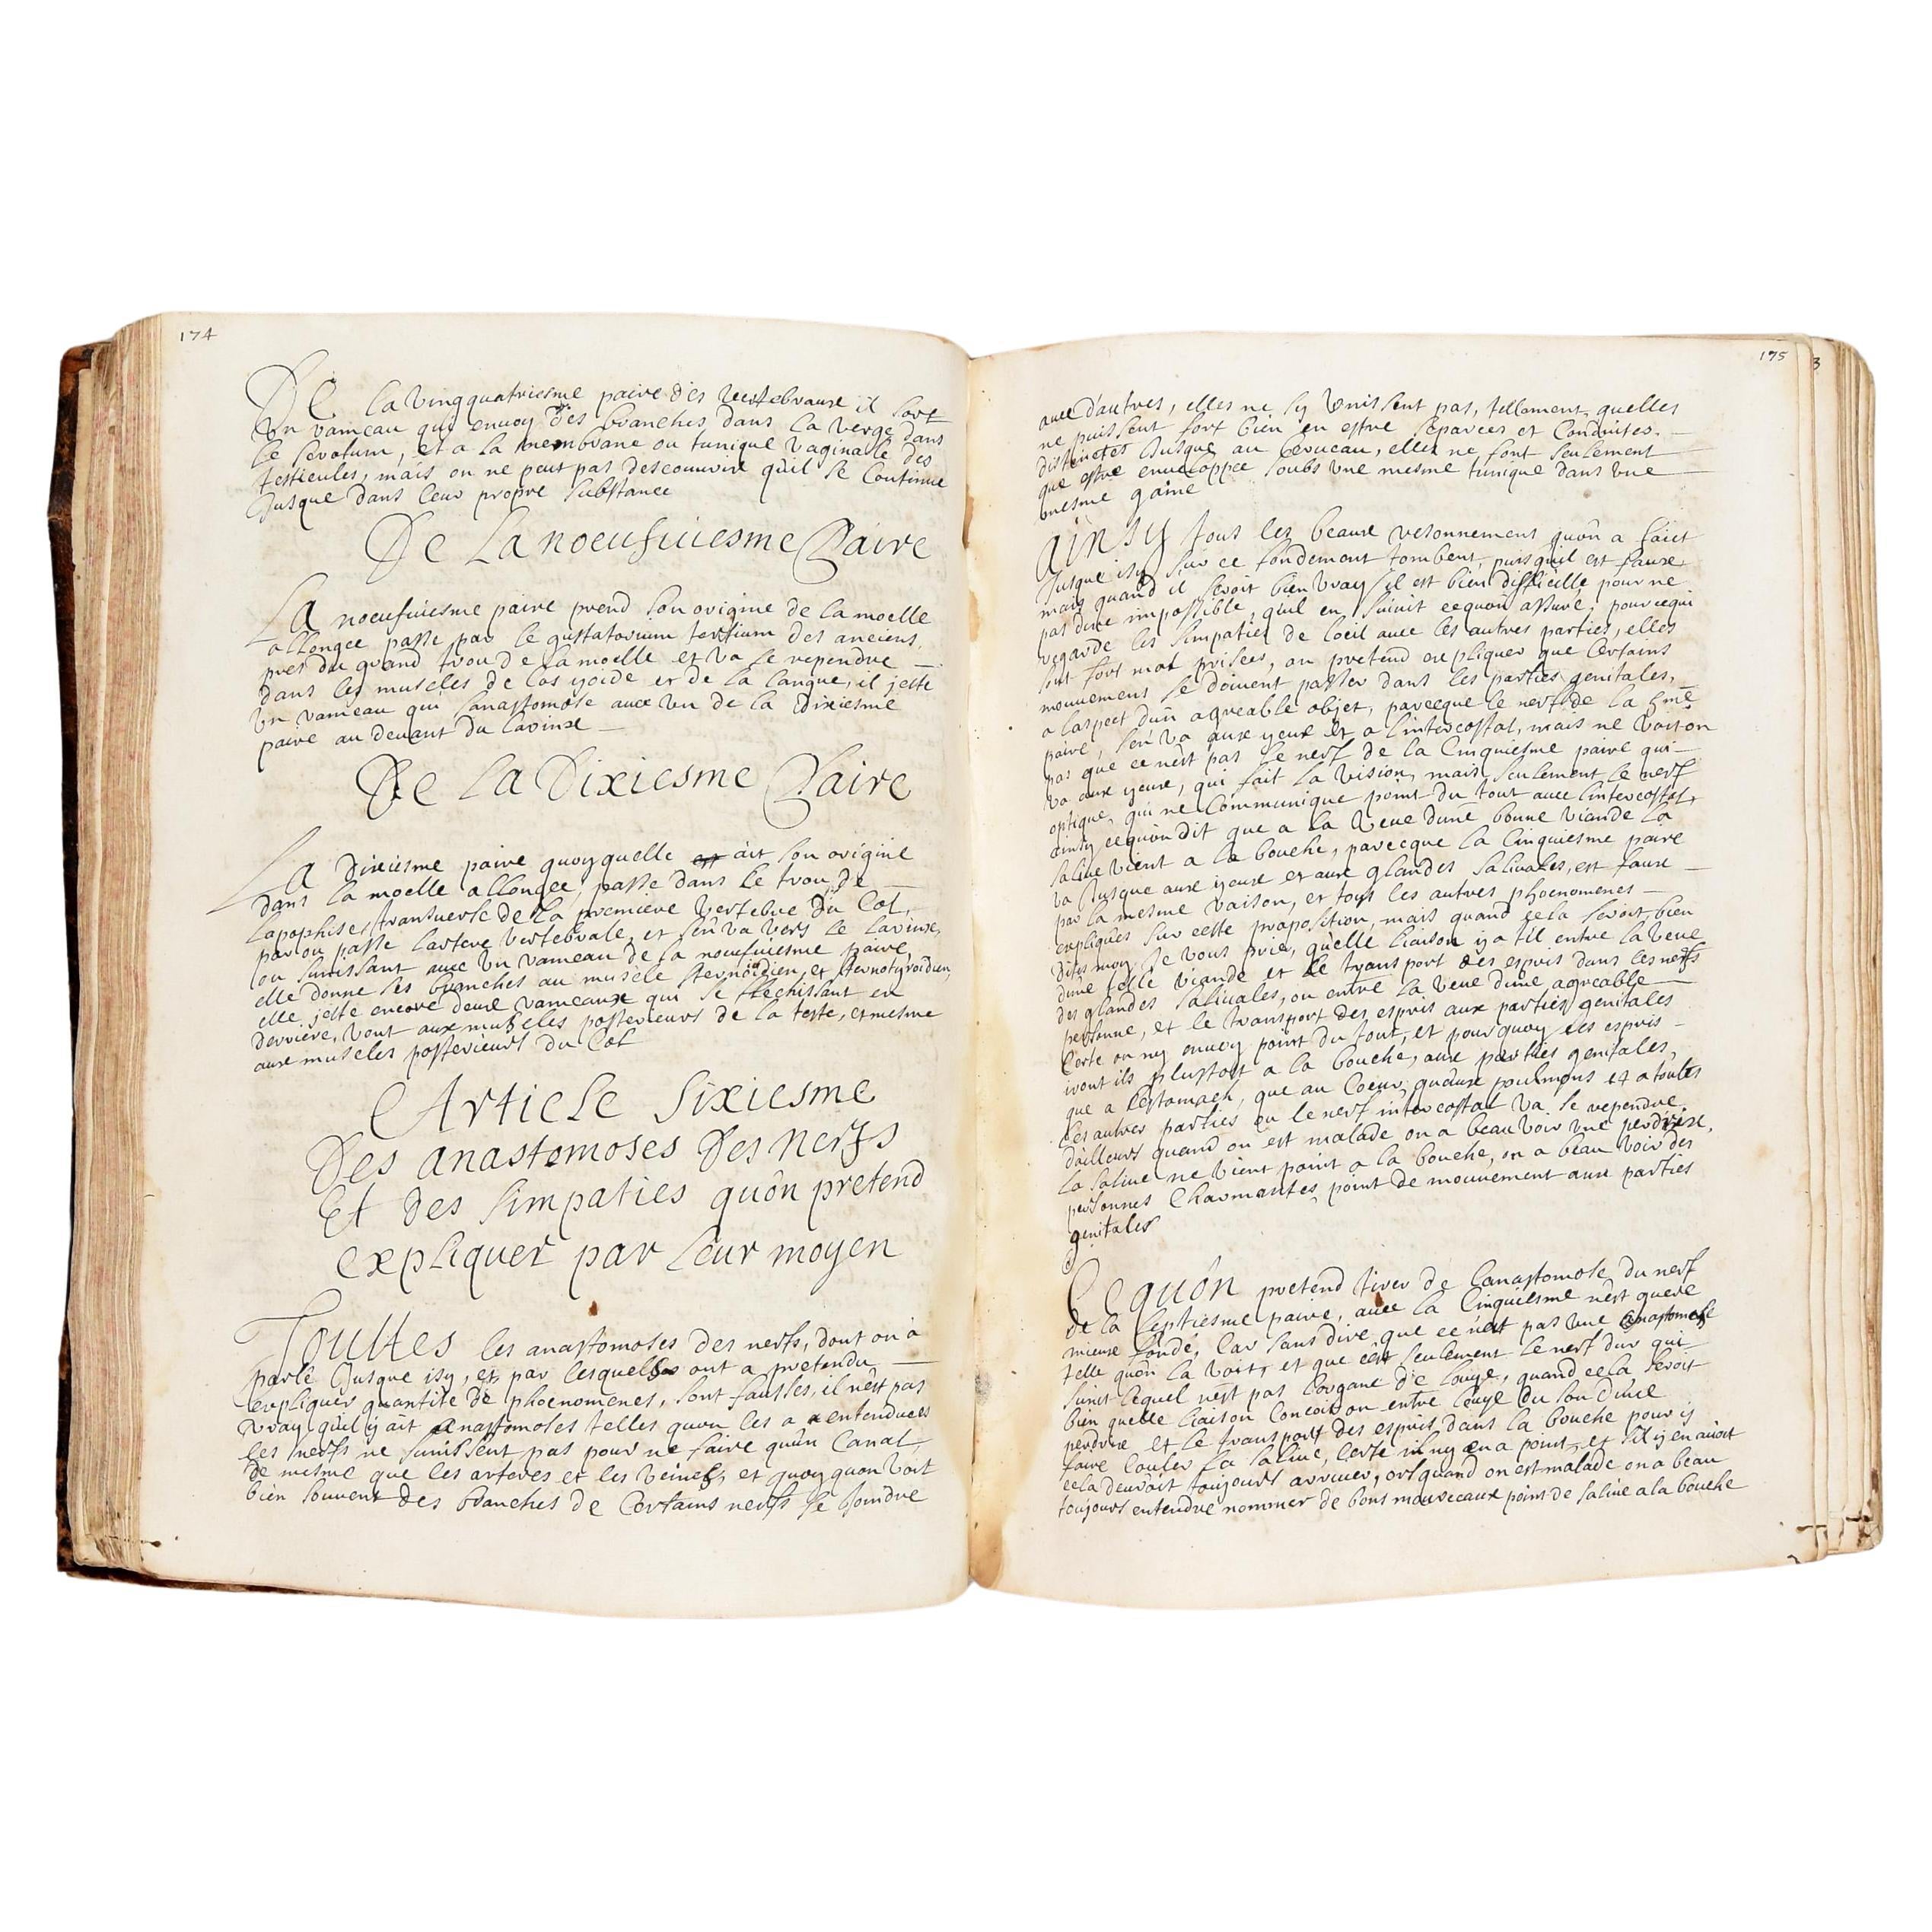 174
De La Vingquatriesme paire des vertebraux il sort
Un rameau qui envoy des branches dans la verge dans
le scrotum, et a la membrane ou tunique vaginalle des
testicules, mais on ne peut pas descouvrir quil se Continue
Jusque dans leur propre substance
De La noeufuiesme Paire
La noeufuiesme paire prend son origine de la moelle
allongee passe par le gustatorium tertium des anciens,
pres du grand trou de la moelle et va se rependre —
dans les muscles de los yoide et de la langue, il jette
Un rameau qui sanastomose avec un de la dixiesme
paire au devant du larinx —
De La Dixiesme Paire
La Dixiesme paire quoyquelle est ait son origine
dans la moelle allongee, passe dans le trou de —
lapophise transuerse de la premiere vertebre du Col,
par ou passe lartere vertebrale, et sen va vers le larinx,
ou sunissant auec un rameau de la noeufuiesme paire,
elle donne ses branches au muscle sternoidien et sternotyroidien,
elle jette encore deux rameaux qui se flechissant en
derriere, vont aux muscles posterieurs de la teste, et mesme
aux muscles posterieurs du Col
Article Sixiesme
Des anastomoses des nerfs
Et des simpaties quôn pretend
expliquer par leur moyen
Touttes les anastomoses des nerfs, dont on a
parlé Jusque isy, et par lesquelles ont a pretendu —
expliquer quantité de phoenomenes, sont fausses, il nêst pas
vray quil y ait anastomoses telles quon les a entendues
les nerfs ne sunissent pas pour ne faire quun Canal,
de mesme que les arteres et les veines, et quoy quon voit
bien souvent des branches de Certains nerfs se joindre
175
3
auec d'autres, elles ne sy Unissent pas, tellement quelles
ne puissent fort bien en estre separées et Conduites —
distinctes Jusque au Cerueau, elles ne font seulement —
que estre enueloppee soubs une mesme tunique dans une —
mesme gaine
Ainsy tous les beaux resonnement quôn a faict
Jusque isy sur ce fondement tombent, puisquil est faux
mais quand il seroit bien vray, sil est bien difficille pour ne
pas dire impossible, quil en suiuit cequôn assure, pourcequi
regarde les simpaties de loeil auec les autres parties, elles
sont fort mal prisees, on pretend expliquer que Certains
mouuemens se doiuent passer dans les parties genitales,
a laspect dun agreable objet, parceque le nerf de la 5me
paire, sen va aux yeux et a lintercostal, mais ne voit on
pas que ce nest pas le nerf de la Cinquiesme paire qui —
va aux yeux, qui fait la vision, mais seulement le nerf
optique, qui ne Communique point du tout auec lintercostal,
ainsy cequon dit que a la veue dune bonne viande la
saliue vient a la bouche, parceque la Cinquiesme paire
va Jusque aux yeux et aux glandes saliuales, est faux —
par la mesme raison, et tous les autres phoenomenes —
expliqués sur cette proposition, mais quand cela seroit bien
dites moy je vous prie, quelle liaison y a til entre la veue
dune telle viande et le transport des espris dans les nerfs
des glandes saliuales, ou entre la veue dune agreable —
personne, et le transport des espris aux parties genitales
Certe on ny enuoy point du tout, et pourquoy les espris —
iront ils plustost a la bouche, aux parties genitales,
que a lestomach, que au Coeur, quaux poulmons et a toutes
les autres parties ou le nerf intercostal va se rependre
dailleurs quand on est malade on a beau voir une perdrix,
la saliue ne vient point a la bouche, on a beau voir des
personnes Charmantes, point de mouuement aux parties
genitales
Cequôn pretend tirer de lanastomose du nerf
de la septiesme paire, auec la Cinquiesme nest guere
mieux fondé, Car sans dire que ce nest pas une anastomose
telle quôn la voit, et que cêst seulement le nerf dur qui —
sunit lequel nest pas lorgane de louye, quand cela seroit
bien quelle liaison Concoit on entre louye du son dune
perdrix et le transport des espris dans la bouche pour y
faire Couler la saliue, Certe il ny en a point, et sil y en auoit
cela deuroit toujours arriuer, or quand on est malade on a beau
toujours entendre nommer de bons morceaux point de saliue a la bouche